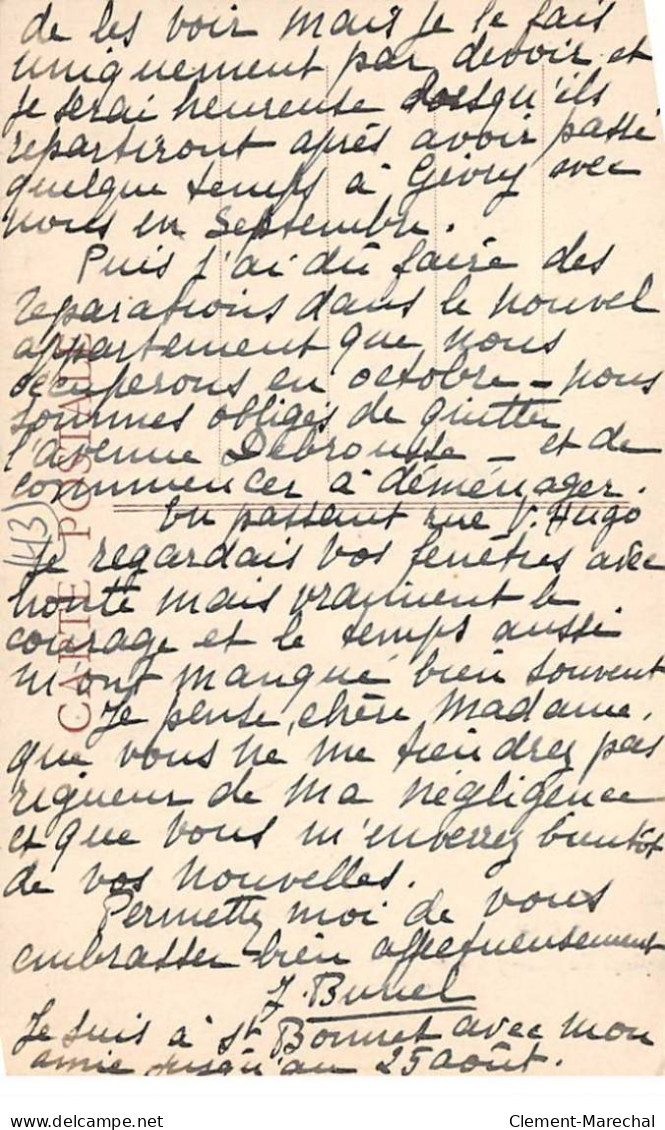 de les voir mais je le fais
uniquement par devoir et
je serai heureuse lorsqu'ils
repartiront après avoir passé
quelque temps à Givry avec
nous en Septembre.
Puis j'ai dû faire des
reparations dans le nouvel
appartement que nous
occuperons en octobre - nous
sommes obligés de quitter
l'avenue Debrousse - et de
commencer à déménager.
En passant rue V. Hugo
je regardais vos fenêtres avec
honte mais vraiment le
courage et le temps aussi
m'ont manqué bien souvent
Je pense, chère Madame,
que vous ne me tiendrez pas
rigueur de ma négligence
et que vous m'enverrez bientôt
de vos nouvelles.
Permettez moi de vous
embrasser bien affectueusement
J. Bunel
Je suis à St Bonnet avec mon
amie jusqu'au 25 août.
(43)
CARTE POSTALE
Clement-Marechal